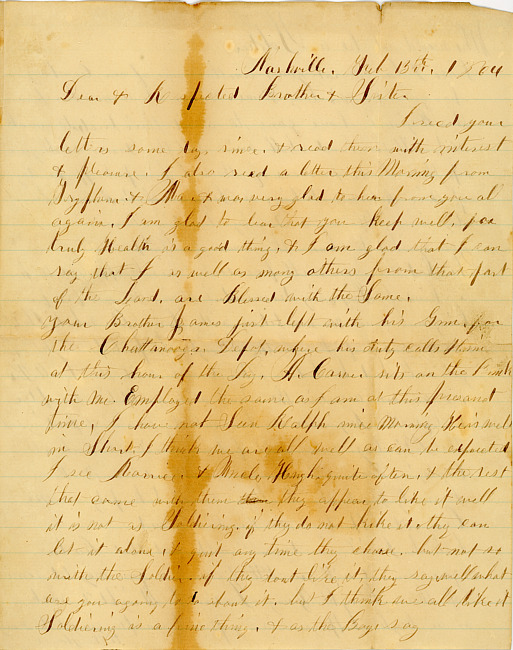 Nashville, Feb 15th, 1864
Dear & Respected Brother & Sister
I recd your
letters some days since. & read them with interest
& pleasure. I also recd a letter this Morning from
& was very glad to hear from you all
again, I am glad to hear that you keep well, for
truly Health is a good thing, & I am glad that I can
say that I as well as many others from that part
of the Land, are Blessed with the Same.
Your Brother James just left with his Gun, for
the Chattanooga Depot, where his duty calls him
at this hour of the Day, A. Carver sits on the Bunk
with me. Employed the same as I am at this present
time, I have not Seen Ralph since Morning He is well
in Short. I think we are all well as can be expected
I see & Uncle Hugh, quite often, & the rest
that came with them they appear to like it well
it is not as Soldiering, if they do not like it, they can
let it alone, & quit any time they choose. but not so
with the Soldier. if they dont like it, they say well what
are you agoing to do about it. but I think we all like it
Soldiering is a fine thing, & as the Boys say